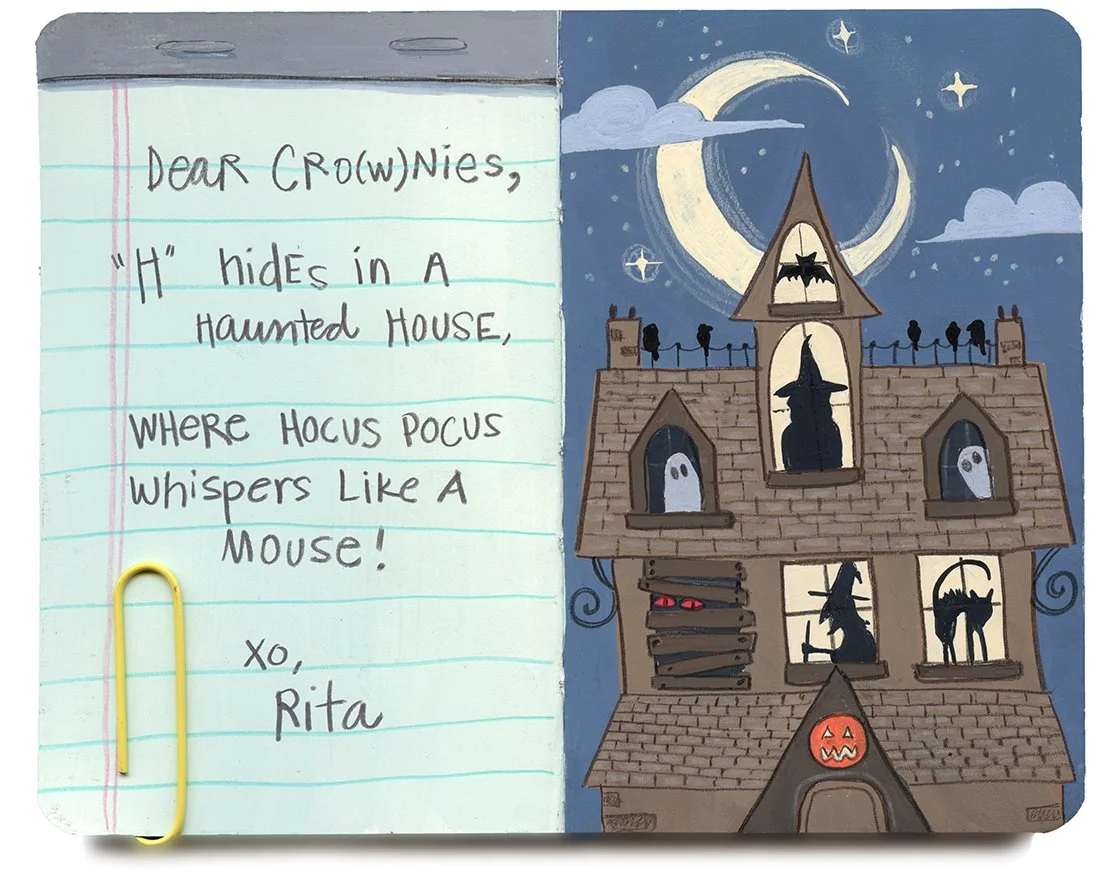 Dear CRO(W)Nies,
"H" hidEs in A
Haunted HOUSE,
WHERE HOCUS POCUS
Whispers Like A
Mouse!
XO,
Rita